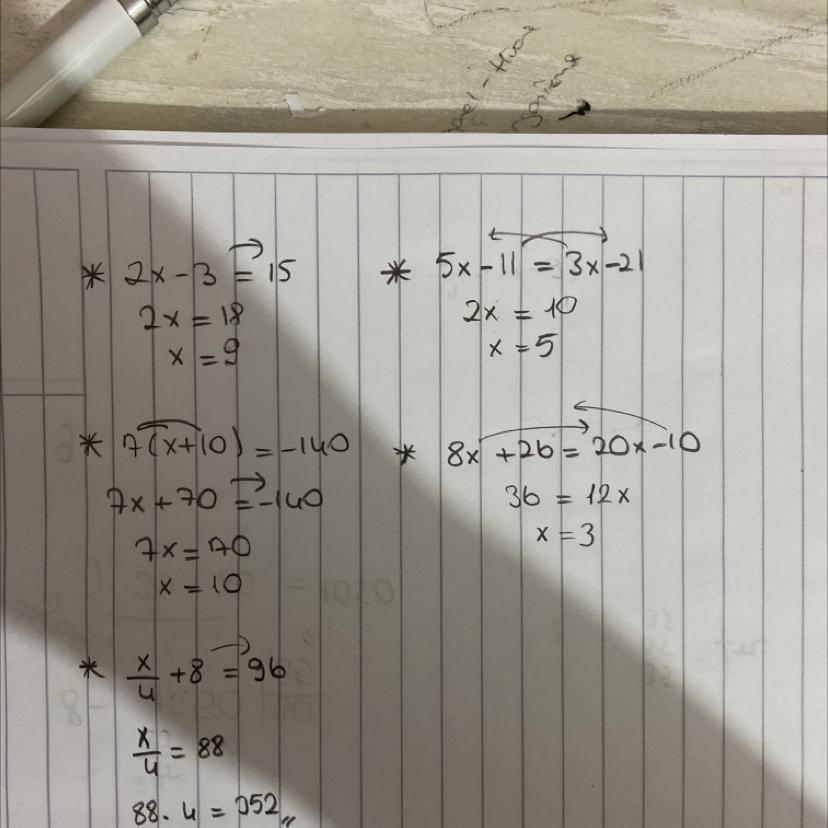 * 2x - 3 = 15
2x = 18
x = 9
* 7(x+10) = -140
7x + 70 = -140
7x = 70
x = 10
* x/4 + 8 = 96
x/4 = 88
88 . 4 = 352,,
* 5x - 11 = 3x - 21
2x = 10
x = 5
* 8x + 26 = 20x - 10
36 = 12x
x = 3